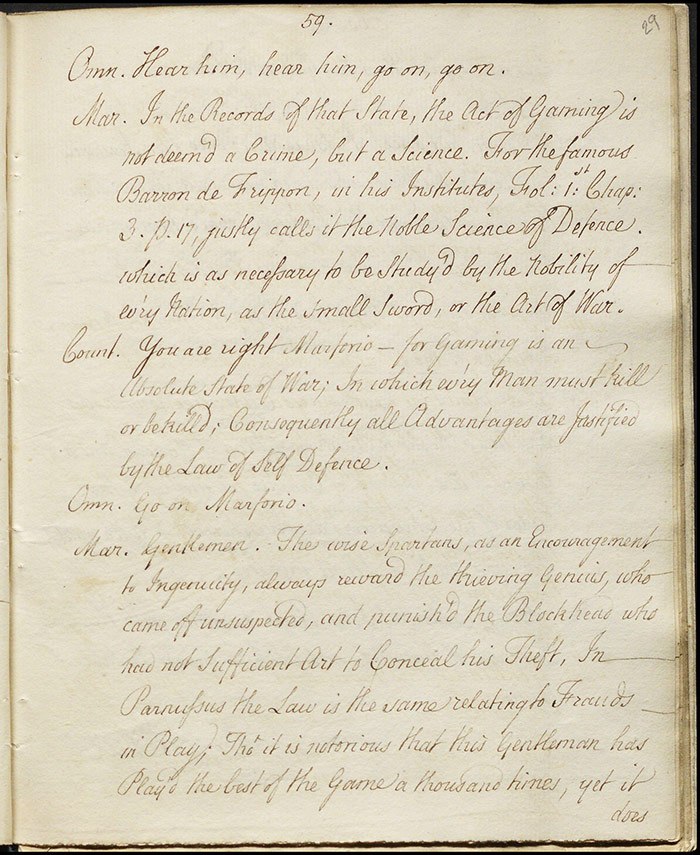 59.
29
Omn. Hear him, hear him, go on, go on.
Mar. In the Records of that State, the Act of Gaming is
not deem'd a Crime, but a Science. For the famous
Barron de Frippon, in his Institutes, Fol: 1:st Chap:
3. p. 17, justly calls it the Noble Science of Defence.
which is as necessary to be Study'd by the Nobility of
ev'ry Nation, as the Small Sword, or the Art of War.
Count. You are right Marforio – for Gaming is an
Absolute State of War; In which ev'ry Man must kill
or be kill'd; Consequently all Advantages are Justified
by the Law of Self Defence.
Omn. Go on Marforio.
Mar. Gentlemen. The wise Spartans, as an Encouragement
to Ingenuity, always reward the thieving Genius, who
came off unsuspected, and punish'd the Blockhead who
had not Sufficient Art to Conceal his Theft, In
Parnussus the Law is the same relating to Frauds
in Play; Tho' it is notorious that this Gentleman has
Play'd the best of the Game a thousand times, yet it
does